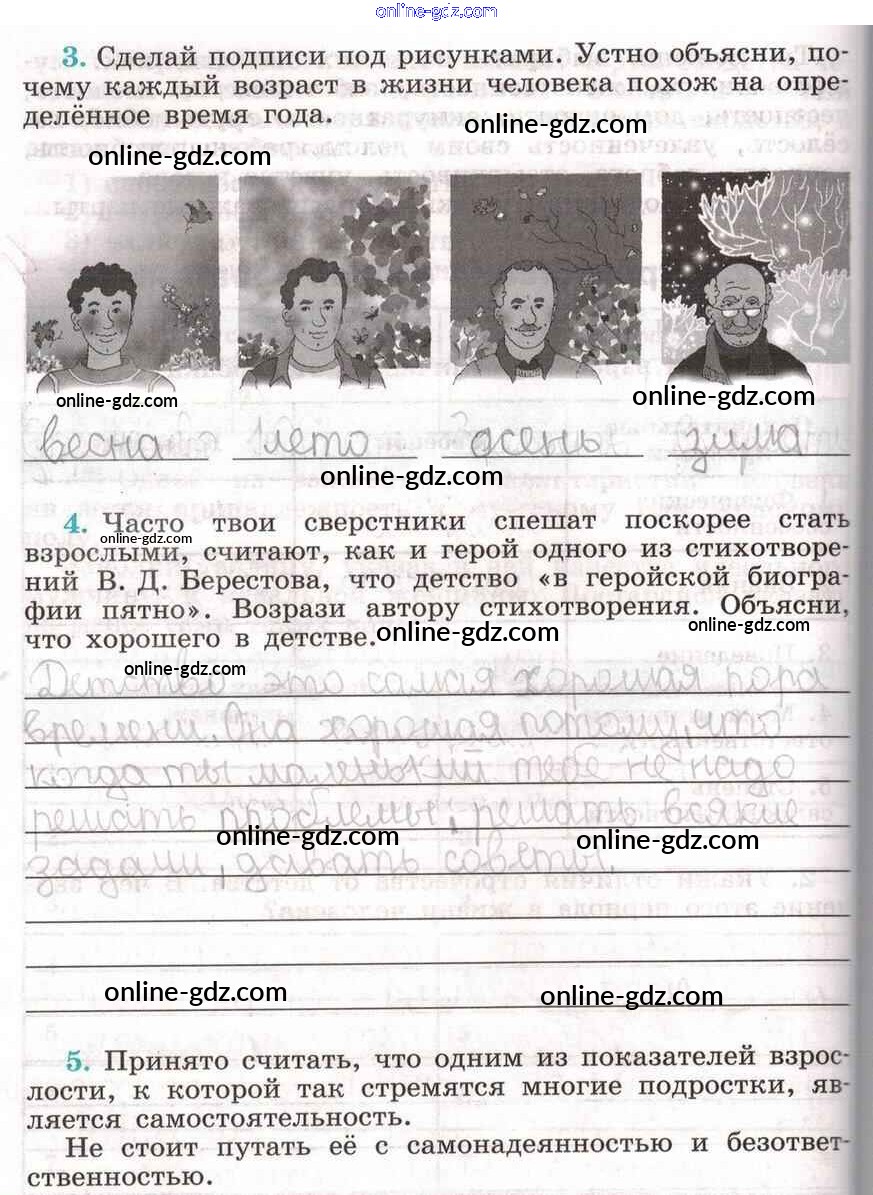 online-gdz.com
3. Сделай подписи под рисунками. Устно объясни, по-
чему каждый возраст в жизни человека похож на опре-
делённое время года.
online-gdz.com
online-gdz.com
online-gdz.com
online-gdz.com
весна лето осень зима
online-gdz.com
4. Часто твои сверстники спешат поскорее стать
online-gdz.com
взрослыми, считают, как и герой одного из стихотворе-
ний В. Д. Берестова, что детство «в геройской биогра-
фии пятно». Возрази автору стихотворения. Объясни,
что хорошего в детстве.
online-gdz.com
online-gdz.com
online-gdz.com
Детство это самая хорошая пора
времени. Она хорошая потому, что
когда ты маленький тебе не надо
решать проблемы, решать всякие
online-gdz.com
online-gdz.com
задачи, давать советы.
online-gdz.com
online-gdz.com
5. Принято считать, что одним из показателей взрос-
лости, к которой так стремятся многие подростки, яв-
ляется самостоятельность.
Не стоит путать её с самонадеянностью и безответ-
ственностью.